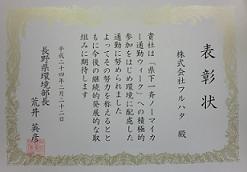 表彰状
株式会社フルハタ 殿
貴社は「県下一斉ノーマイカ
ー通勤ウィーク」への積極的
参加をはじめ環境に配慮した
通勤に努められました
よってその努力を称えるとと
もに今後の継続的発展的な取
組みに期待します
平成二十四年二月二十二日
長野県環境部長
荒井英彦